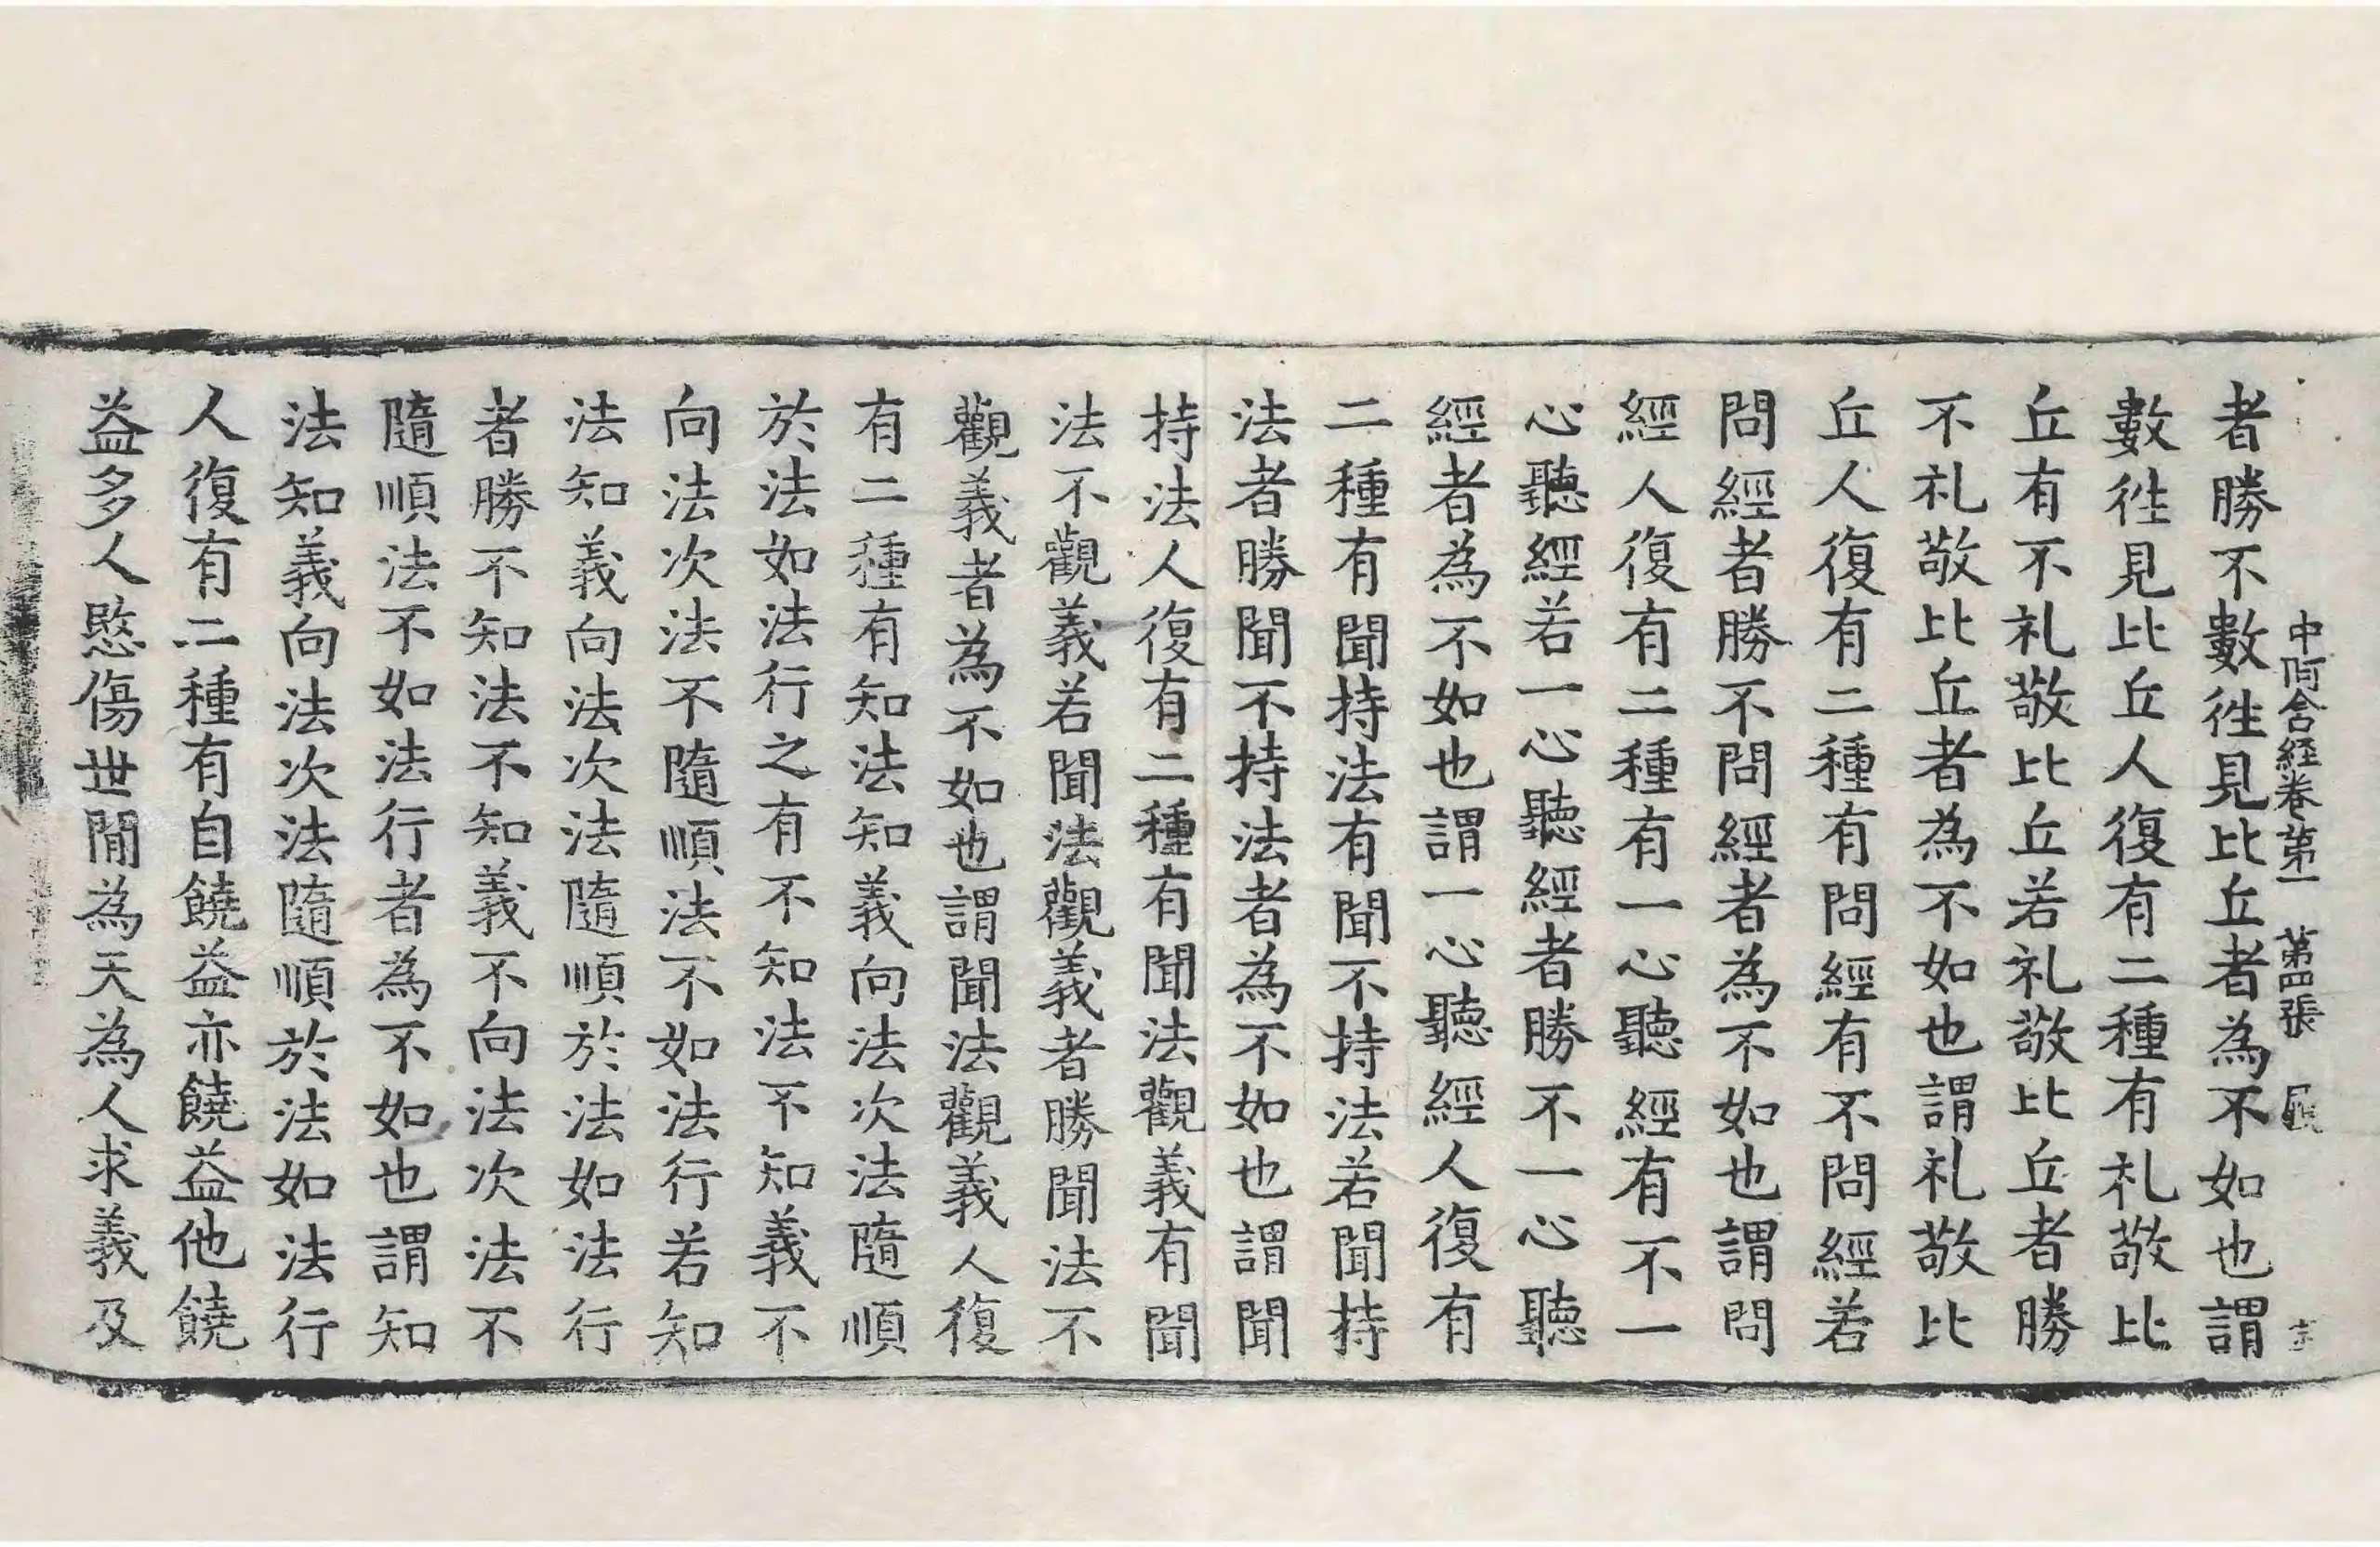 中阿含経卷第一 第四張
者勝不數徃見比丘者為不如也謂
數徃見比丘人復有二種有礼敬比
丘有不礼敬比丘若礼敬比丘者勝
不礼敬比丘者為不如也謂礼敬比
丘人復有二種有問經有不問經若
問經者勝不問經者為不如也謂問
經人復有二種有一心聽經有不一
心聽經若一心聽經者勝不一心聽
經者為不如也謂一心聽經人復有
二種有聞持法有聞不持法若聞持
法者勝聞不持法者為不如也謂聞
持法人復有二種有聞法觀義有聞
法不觀義若聞法觀義者勝聞法不
觀義者為不如也謂聞法觀義人復
有二種有知法知義向法次法隨順
於法如法行之有不知法不知義不
向法次法不隨順法不如法行若知
法知義向法次法隨順於法如法行
者勝不知法不知義不向法次法不
隨順法不如法行者為不如也謂知
法知義向法次法隨順於法如法行
人復有二種有自饒益亦饒益他饒
益多人愍傷世閒為天為人求義及